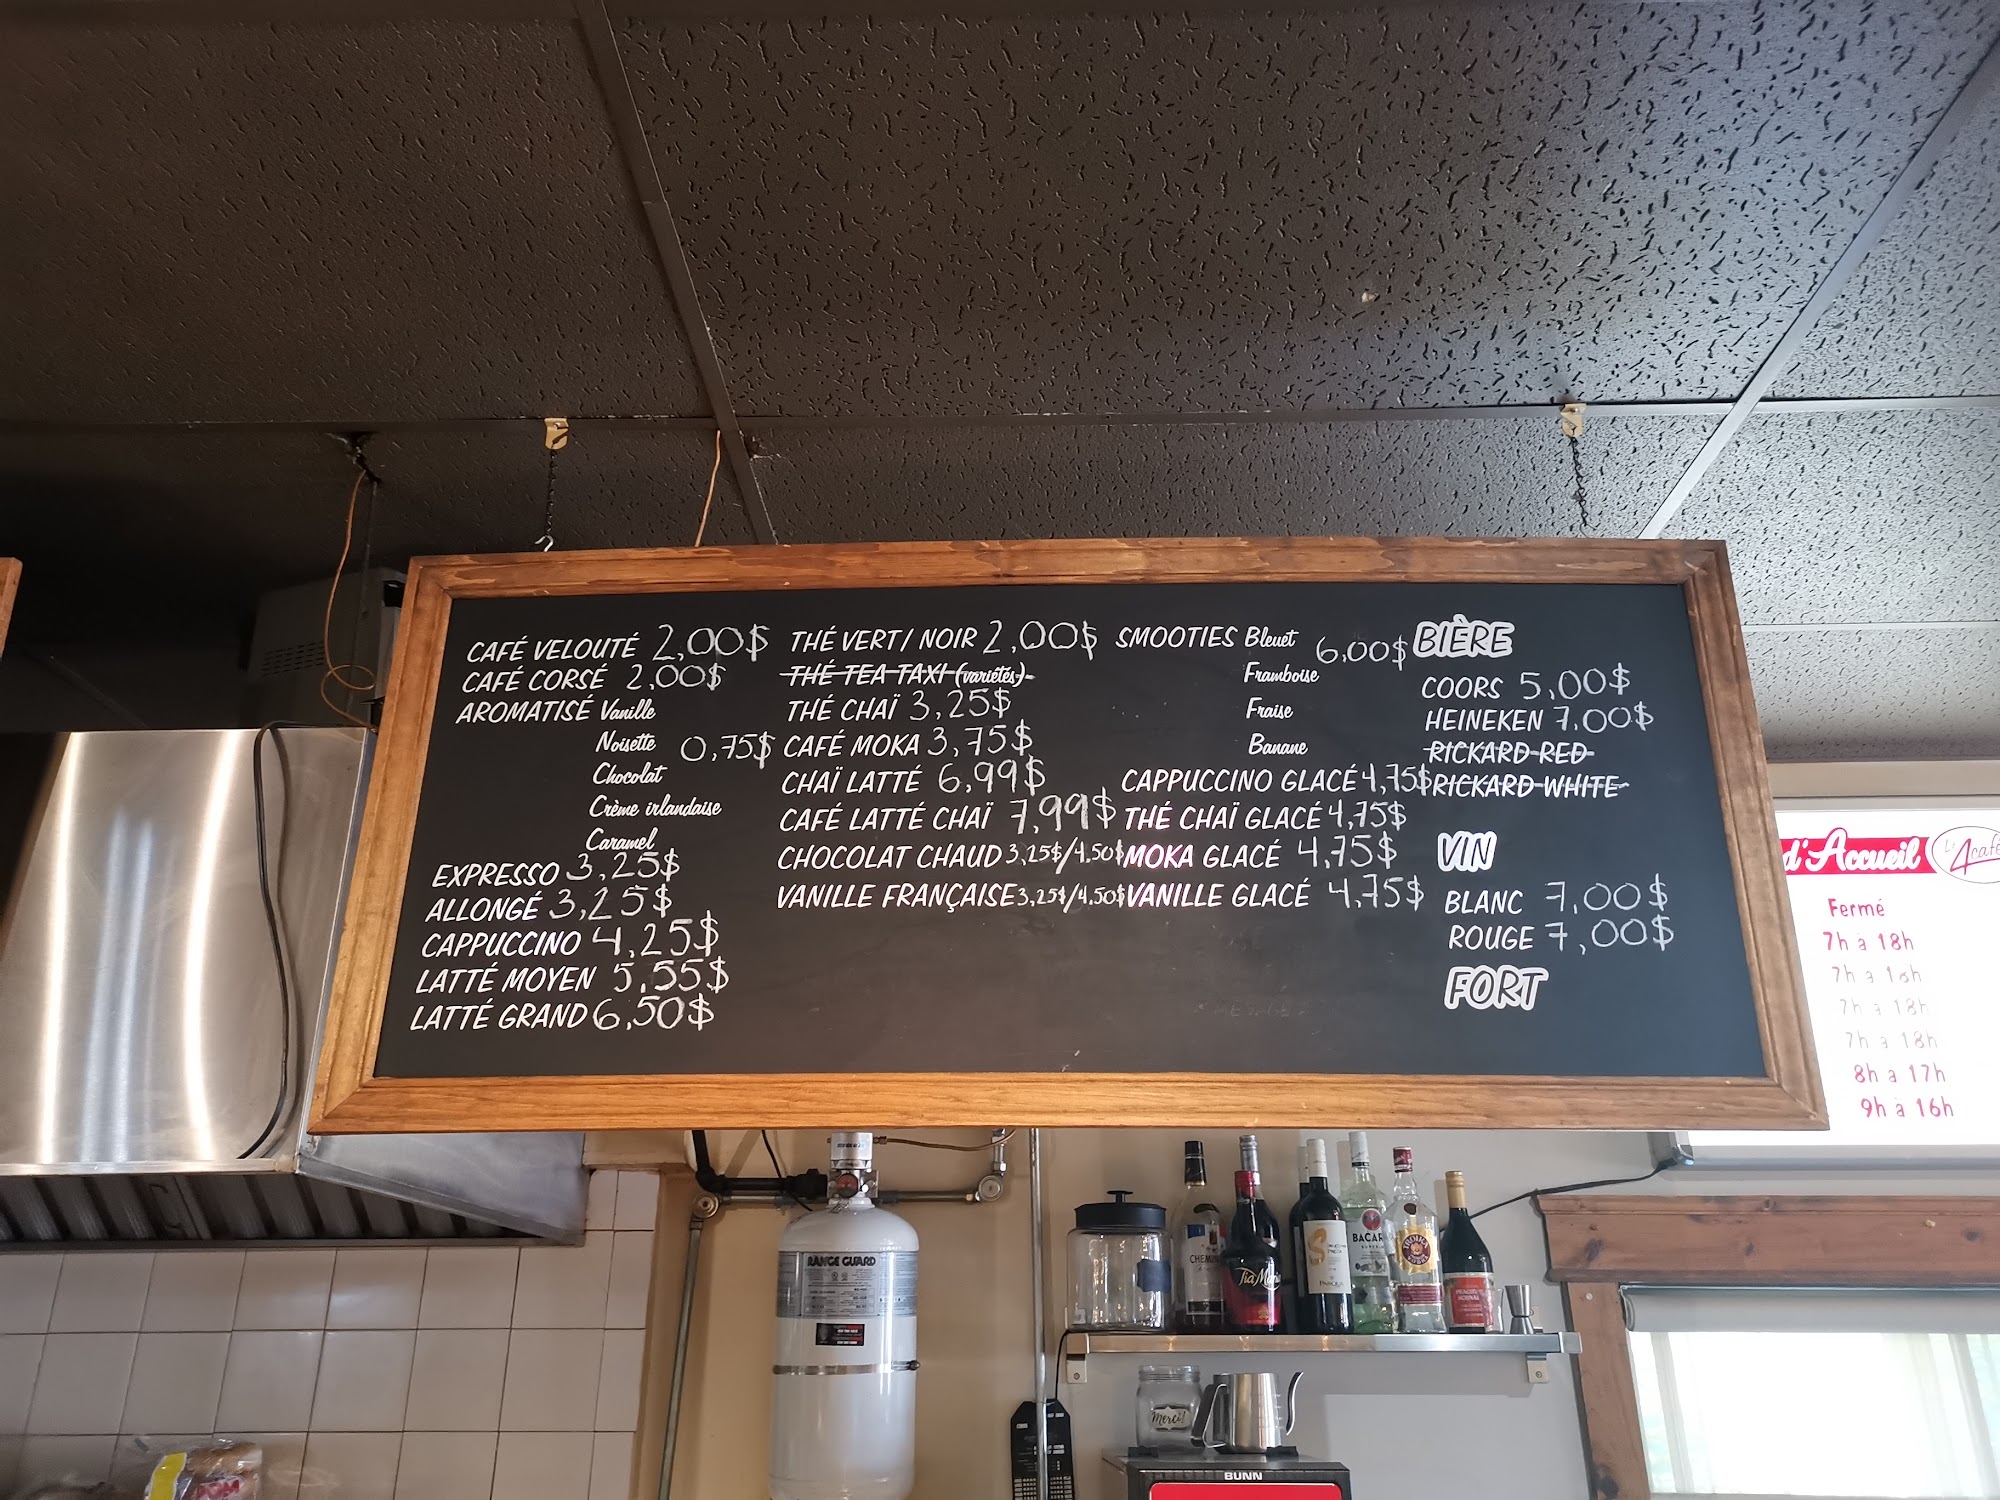 CAFÉ VELOUTÉ 2,00$
CAFÉ CORSÉ 2,00$
AROMATISÉ Vanille
Noisette 0,75$
Chocolat
Crème irlandaise
Caramel
EXPRESSO 3,25$
ALLONGÉ 3,25$
CAPPUCCINO 4,25$
LATTÉ MOYEN 5,55$
LATTÉ GRAND 6,50$
THÉ VERT/ NOIR 2,00$
THÉ TEA TAXI (variétés)
THÉ CHAÏ 3,25$
CAFÉ MOKA 3,75$
CHAÏ LATTÉ 6,99$
CAFÉ LATTÉ CHAÏ 7,99$
CHOCOLAT CHAUD 3,25$/4,50$
VANILLE FRANÇAISE 3,25$/4,50$
SMOOTIES Bleuet 6,00$
Framboise
Fraise
Banane
CAPPUCCINO GLACÉ 4,75$
THÉ CHAÏ GLACÉ 4,75$
MOKA GLACÉ 4,75$
VANILLE GLACÉ 4,75$
BIÈRE
COORS 5,00$
HEINEKEN 7,00$
RICKARD RED
RICKARD WHITE
VIN
BLANC 7,00$
ROUGE 7,00$
FORT
d'Accueil
Fermé
7h à 18h
7h à 18h
7h à 18h
7h à 18h
8h à 17h
9h à 16h
RANGE GUARD
Tia Maria
BACAR
Merci!
BUNN